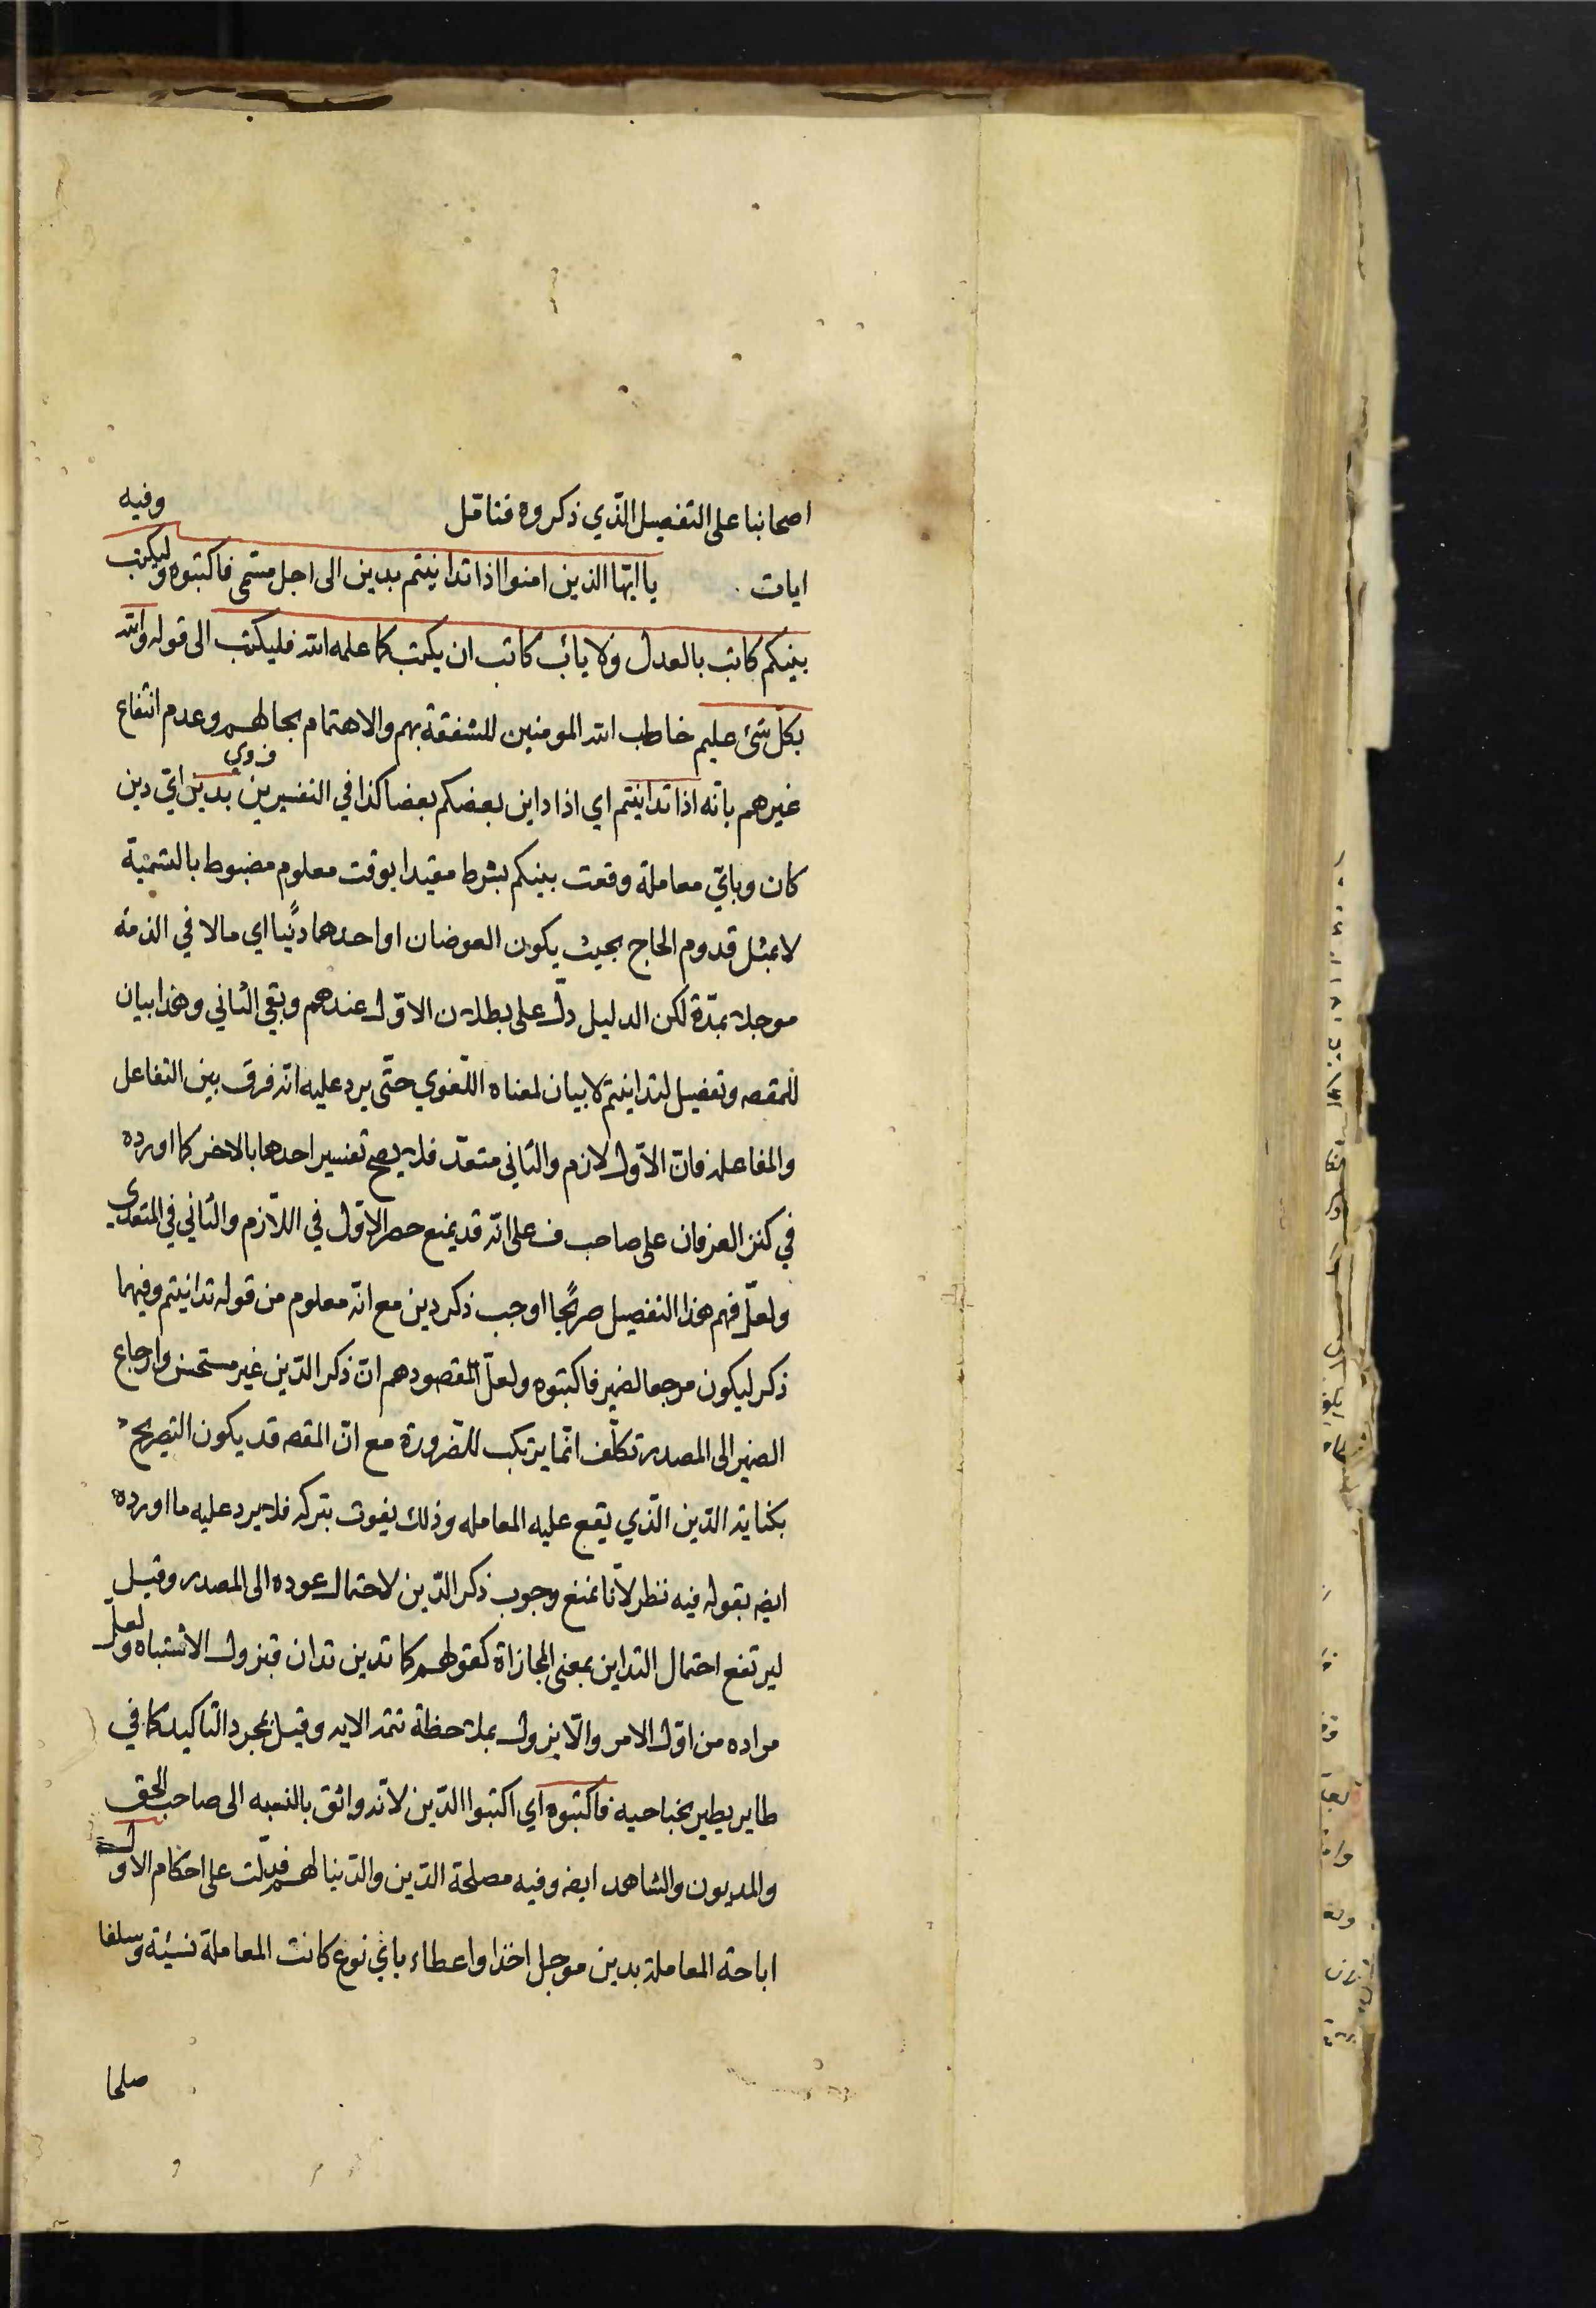 اصحابنا على التفصيل الذي ذكروه فتامّل وفيه
ايات يا ايّها الذين امنوا اذا تداينتم بدين الى اجل مسمّى فاكتبوه وليكتب
بينكم كاتب بالعدل ولا ياب كاتب ان يكتب كما علمه الله فليكتب الى قوله والله
بكلّ شئ عليم خاطب الله المومنين للشفقة بهم والاهتمام بحالهم وعدم انتفاع
غيرهم بانّه اذا تداينتم اي اذا داين بعضكم بعضا كذا في التفسيرين ف وي بدين ايّ دين
كان وبايّ معاملة وقعت بينكم بشرط مقيدا بوقت معلوم مضبوط بالتسمية
لا بمثل قدوم الحاج بحيث يكون العوضان او احدهما دَيْنا اي مالا في الذمّة
موجلا بمدّة لكن الدليل دلّ على بطلان الاوّل عندهم وبقي الثاني وهذا بيان
للمقصه وتفصيل لتداينتم لا بيان لمعناه اللّغوي حتّى يرد عليه انّه فرق بين التفاعل
والمفاعلة فانّ الاوّل لازم والثاني متعدّ فلا يصح تفسير احدهما بالاخر كما اورده
في كنز العرفان على صاحب ف على انّه قد يمنع حصر الاوّل في اللّازم والثاني في المتعدي
ولعلّ فهم هذا التفصيل صريحًا اوجب ذكر دين مع انّه معلوم من قوله تداينتم وفيهما
ذكر ليكون مرجعا لضمير فاكتبوه ولعلّ المقصودهم انّ ذكر الدّين غير مستحسن وارجاع
الضمير الى المصدر تكلّف انّما يرتكب للضّرورة مع انّ المقصه قد يكون التصريح
بكتابة الدّين الّذي يقع عليه المعامله وذلك يفوت بتركه فلا يرد عليه ما اورده
ايضه بقوله فيه نظر لانّا نمنع وجوب ذكر الدّين لاحتمال عوده الى المصدر وقيل
ليرتفع احتمال التداين بمعنى المجازاة كقولهم كما تدين تدان فيزول الاشتباه ولعلّ
مراده من اوّل الامر والّا يزول بملاحظة تتمة الايه وقيل بمجرد التاكيد كما في
طاير يطير بجناحيه فاكتبوه اي اكتبوا الدّين لانّه واثق بالنسبه الى صاحب الحق
والمديون والشاهد ايضه وفيه مصلحة الدّين والدّنيا لهم فدلّت على احكام الاوّل
اباحة المعاملة بدين موجل اخذا واعطاء باي نوع كانت المعاملة نسيئة وسلفا
صلحا